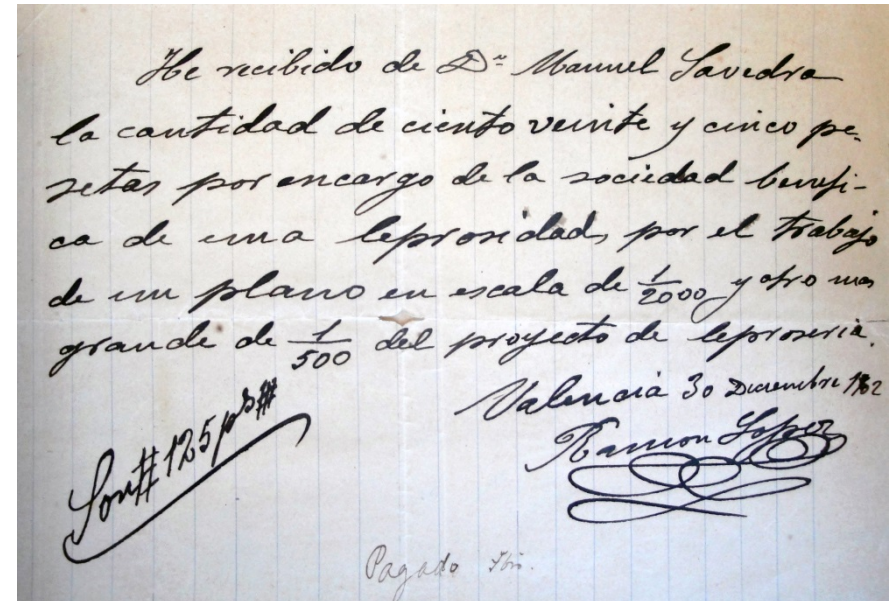 He recibido de Dn Manuel Savedra
la cantidad de ciento veinte y cinco pe-
setas por encargo de la sociedad benefi-
ca de una leprosidad, por el trabajo
de un plano en escala de 1/2000 y otro mas
grande de 1/500 del proyecto de leproseria.
Valencia 30 Diciembre 1902
Ramon Lopez
Son # 125 pts #
Pagado